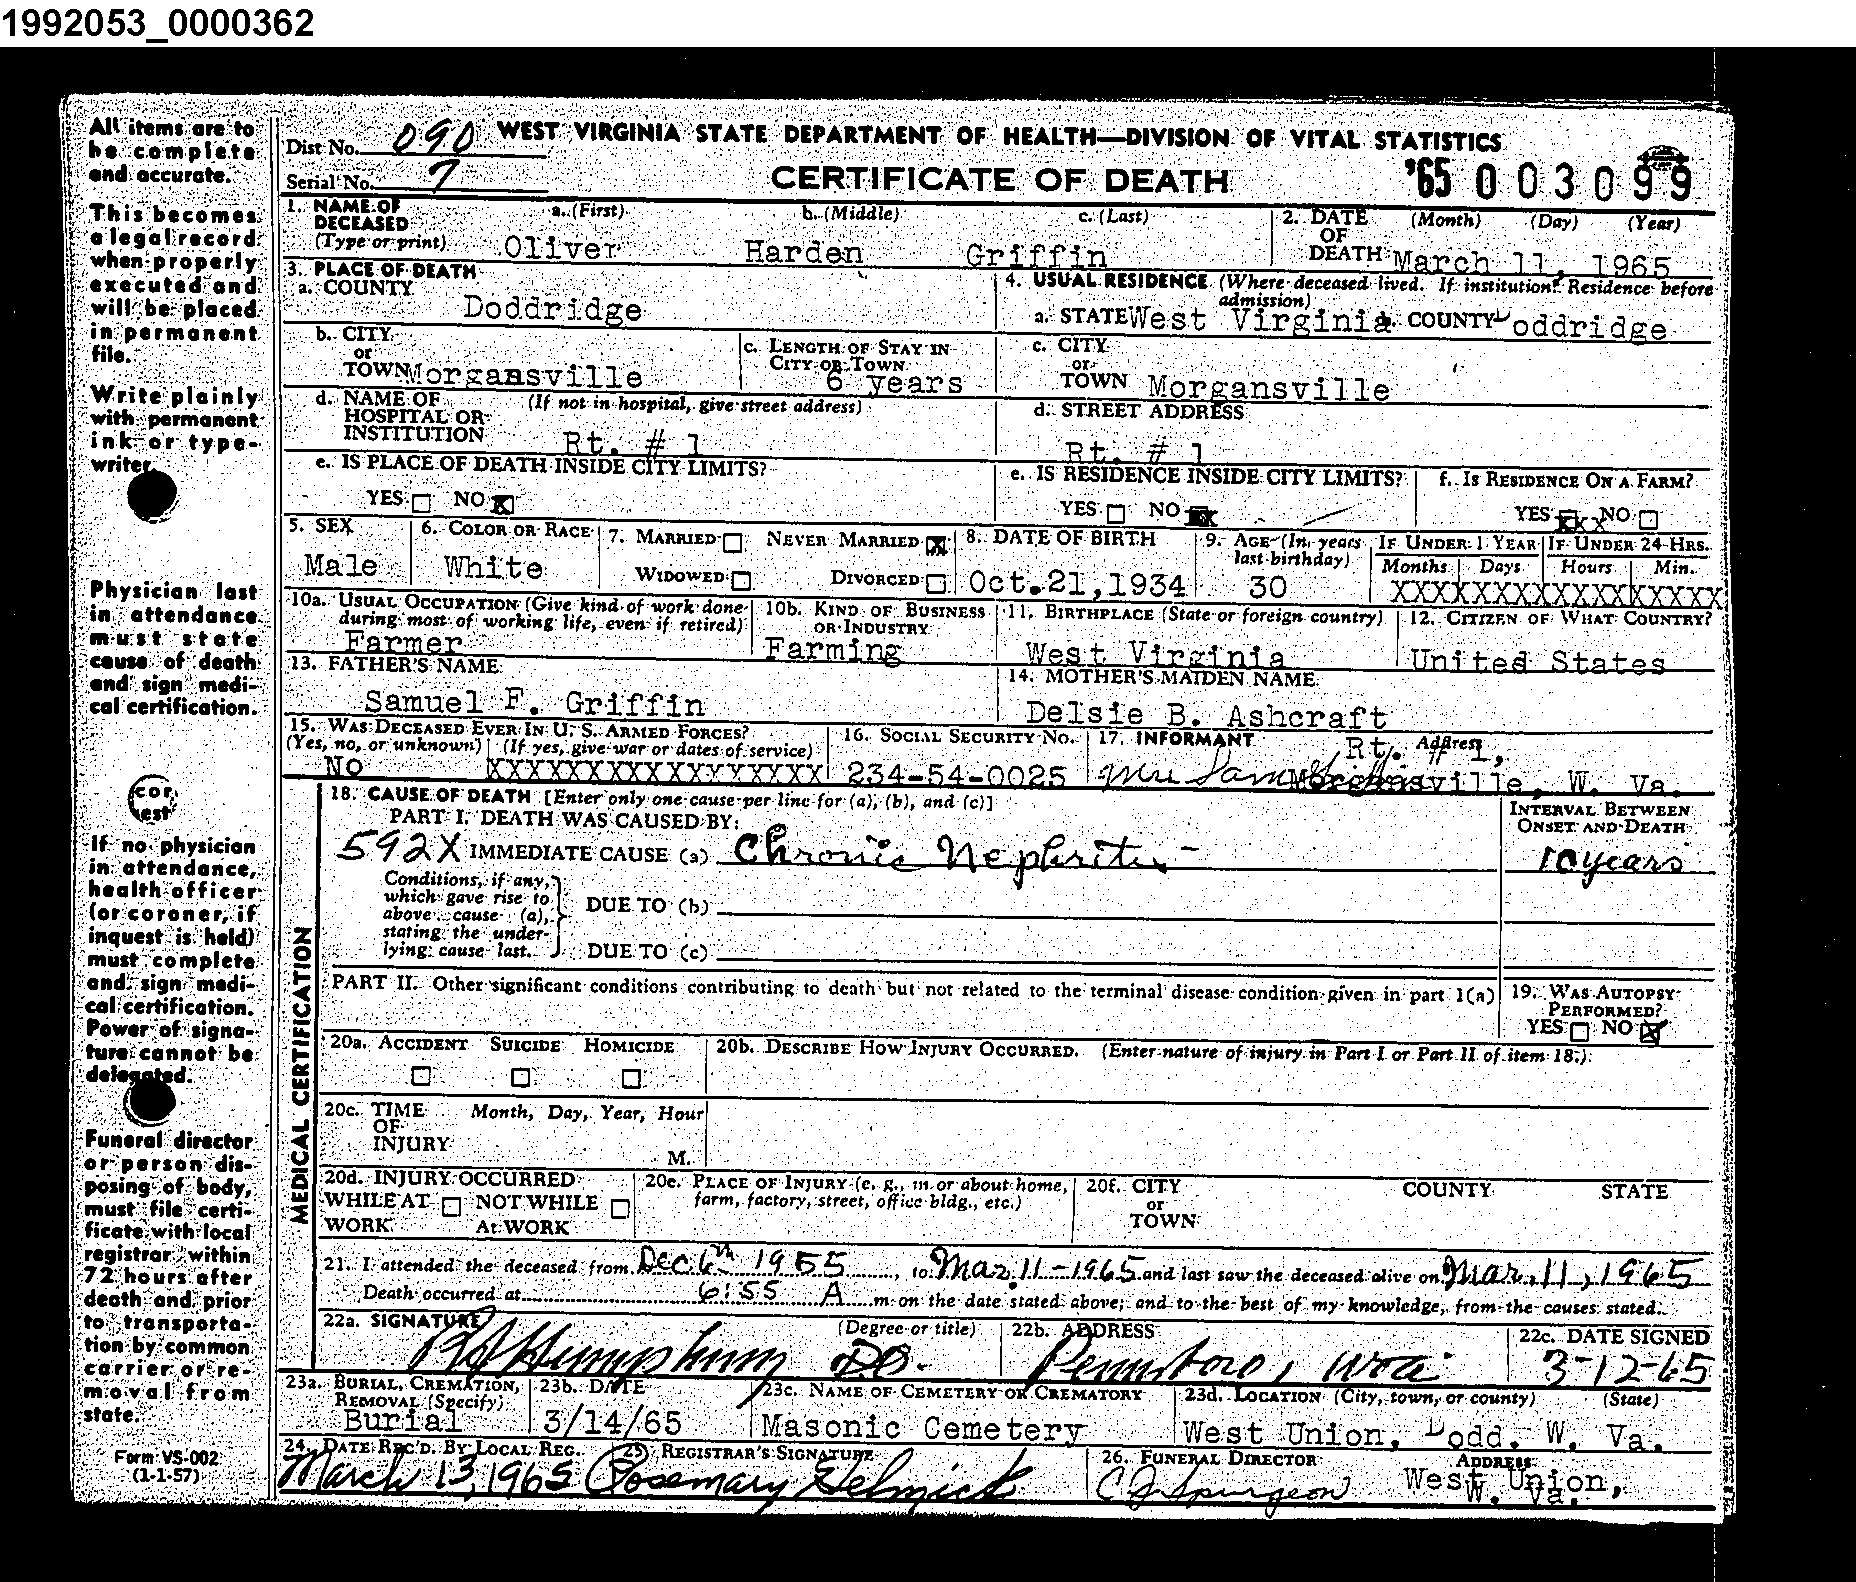 1992053_0000362
All items are to
be complete
and accurate.
This becomes
a legal record
when properly
executed and
will be placed
in permanent
file.
Write plainly
with permanent
ink or type-
writer.
Physician last
in attendance
must state
cause of death
and sign medi-
cal certification.
If no physician
in attendance,
health officer
(or coroner, if
inquest is held)
must complete
and sign medi-
cal certification.
Power of signa-
ture cannot be
delegated.
Funeral director
or person dis-
posing of body,
must file certi-
ficate with local
registrar within
72 hours after
death and prior
to transporta-
tion by common
carrier or re-
moval from
state.
Form VS-002
(1-1-57)
Dist No. 090 WEST VIRGINIA STATE DEPARTMENT OF HEALTH—DIVISION OF VITAL STATISTICS
Serial No. 7 CERTIFICATE OF DEATH '65 003099
1. NAME OF DECEASED (Type or print) a. (First) b. (Middle) c. (Last) 2. DATE OF DEATH (Month) (Day) (Year)
Oliver Harden Griffin March 11, 1965
3. PLACE OF DEATH
a. COUNTY
Doddridge
4. USUAL RESIDENCE (Where deceased lived. If institution: Residence before admission)
a. STATE West Virginia b. COUNTY Doddridge
b. CITY or TOWN Morgansville c. LENGTH OF STAY IN CITY OR TOWN 6 years
c. CITY or TOWN Morgansville
d. NAME OF HOSPITAL OR INSTITUTION (If not in hospital, give street address)
Rt. # 1
d. STREET ADDRESS
Rt. # 1
e. IS PLACE OF DEATH INSIDE CITY LIMITS?
YES NO X
e. IS RESIDENCE INSIDE CITY LIMITS?
YES NO XX
f. IS RESIDENCE ON A FARM?
YES XXX NO
5. SEX Male
6. COLOR OR RACE White
7. MARRIED NEVER MARRIED X
WIDOWED DIVORCED
8. DATE OF BIRTH Oct.21,1934
9. AGE (In years last birthday) 30
IF UNDER 1 YEAR IF UNDER 24 HRS.
Months Days Hours Min.
XXXXXXXXXXXXXXXXXXXX
10a. USUAL OCCUPATION (Give kind of work done during most of working life, even if retired)
Farmer
10b. KIND OF BUSINESS OR INDUSTRY
Farming
11. BIRTHPLACE (State or foreign country)
West Virginia
12. CITIZEN OF WHAT COUNTRY?
United States
13. FATHER'S NAME
Samuel F. Griffin
14. MOTHER'S MAIDEN NAME
Delsie B. Ashcraft
15. WAS DECEASED EVER IN U. S. ARMED FORCES?
(Yes, no, or unknown) (If yes, give war or dates of service)
No XXXXXXXXXXXXXXXXX
16. SOCIAL SECURITY NO.
234-54-0025
17. INFORMANT Address
Rt. # 1,
Mrs Sam Morgansville, W. Va.
MEDICAL CERTIFICATION
18. CAUSE OF DEATH [Enter only one cause per line for (a), (b), and (c)]
INTERVAL BETWEEN ONSET AND DEATH
PART I. DEATH WAS CAUSED BY:
592X IMMEDIATE CAUSE (a) Chronic Nephritis 10 years
Conditions, if any, which gave rise to above cause (a), stating the under-lying cause last.
DUE TO (b)
DUE TO (c)
PART II. Other significant conditions contributing to death but not related to the terminal disease condition given in part I(a)
19. WAS AUTOPSY PERFORMED?
YES NO X
20a. ACCIDENT SUICIDE HOMICIDE
20b. DESCRIBE HOW INJURY OCCURRED. (Enter nature of injury in Part I or Part II of item 18.)
20c. TIME OF INJURY Month, Day, Year, Hour
M.
20d. INJURY OCCURRED
WHILE AT WORK NOT WHILE AT WORK
20e. PLACE OF INJURY (e. g., in or about home, farm, factory, street, office bldg., etc.)
20f. CITY or TOWN COUNTY STATE
21. I attended the deceased from Dec 6th 1955, to Mar. 11-1965 and last saw the deceased alive on Mar. 11, 1965
Death occurred at 6:55 A m on the date stated above; and to the best of my knowledge, from the causes stated.
22a. SIGNATURE (Degree or title)
DO.
22b. ADDRESS
Pennsboro, W Va
22c. DATE SIGNED
3-12-65
23a. BURIAL, CREMATION, REMOVAL (Specify)
Burial
23b. DATE
3/14/65
23c. NAME OF CEMETERY OR CREMATORY
Masonic Cemetery
23d. LOCATION (City, town, or county) (State)
West Union, Dodd. W. Va.
24. DATE REC'D. BY LOCAL REG.
March 13, 1965
25. REGISTRAR'S SIGNATURE
Rosemary Helmick
26. FUNERAL DIRECTOR ADDRESS
C J Spurgeon West Union,
W. Va.